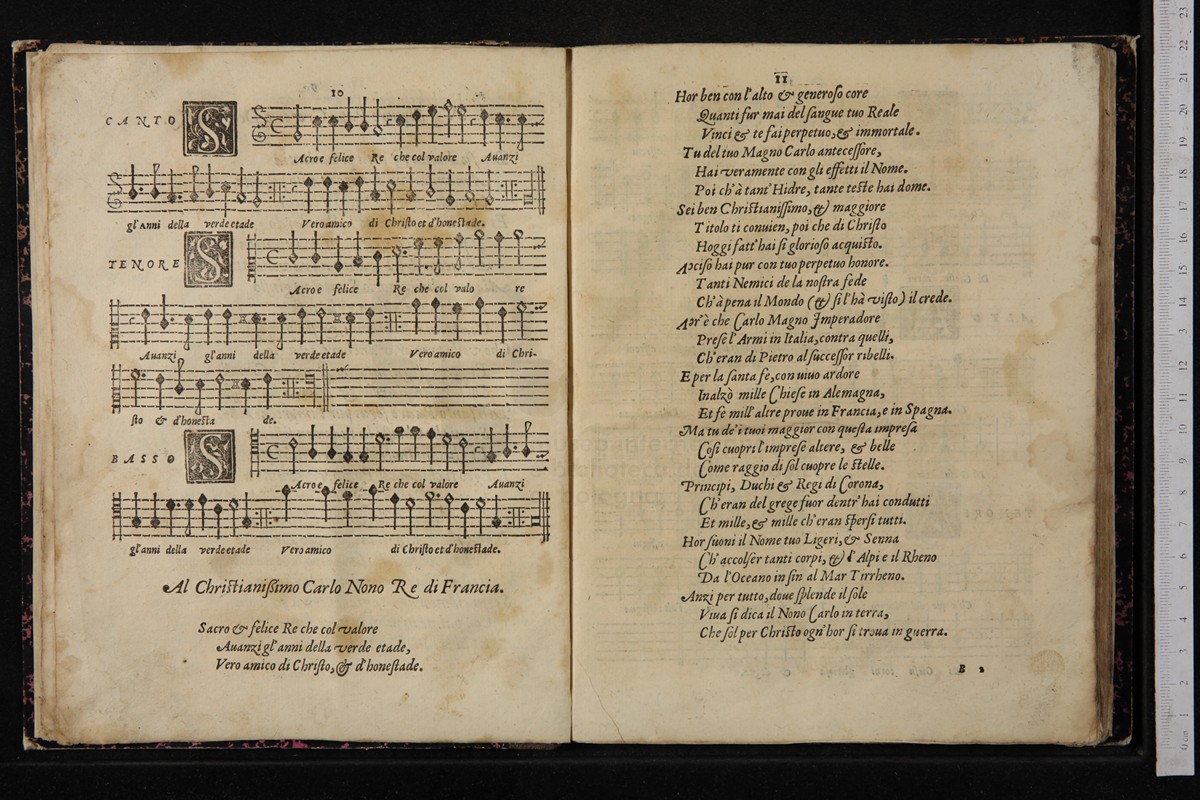 10
CANTO
S Acro e felice Re che col valore Auanzi
gl'Anni della verde etade Vero amico di Christo et d'honestade.
TENORE
S Acro e felice Re che col valo re
Auanzi gl'anni della verde etade Vero amico di Chri-
sto & d'honesta de.
BASSO
S Acro e felice Re che col valore Auanzi
gl'anni della verde etade Vero amico di Christo et d'honestade.
Al Christianissimo Carlo Nono Re di Francia.
Sacro & felice Re che col valore
Auanzi gl'anni della verde etade,
Vero amico di Christo, & d'honestade.
11
Hor ben con l'alto & generoso core
Quanti fur mai del sangue tuo Reale
Vinci & te fai perpetuo, & immortale.
Tu del tuo Magno Carlo antecessore,
Hai veramente con gli effetti il Nome.
Poi ch'à tant'Hidre, tante teste hai dome.
Sei ben Christianissimo, & maggiore
Titolo ti conuien, poi che di Christo
Hoggi fatt'hai sì glorioso acquisto.
Acciso hai pur con tuo perpetuo honore.
Tanti Nemici de la nostra fede
Ch'à pena il Mondo (& sì l'hà visto) il crede.
Ver'è che Carlo Magno Imperadore
Prese l'Armi in Italia, contra quelli,
Ch'eran di Pietro al successor ribelli.
E per la santa fe, con uiuo ardore
Inalzò mille Chiese in Alemagna,
Et fè mill'altre proue in Francia, e in Spagna.
Ma tu de'i tuoi maggior con questa impresa
Così cuopri l'imprese altere, & belle
Come raggio di sol cuopre le stelle.
Principi, Duchi & Regi di Corona,
Ch'eran del grege fuor dentr'hai condutti
Et mille, & mille ch'eran spersi tutti.
Hor suoni il Nome tuo Ligeri, & Senna
Ch'accolser tanti corpi, & l'Alpi e il Rheno
Da l'Oceano insin al Mar Tirrheno.
Anzi per tutto, doue splende il sole
Viua si dica il Nono Carlo in terra,
Che sol per Christo ogn'hor si troua in guerra.
B 2